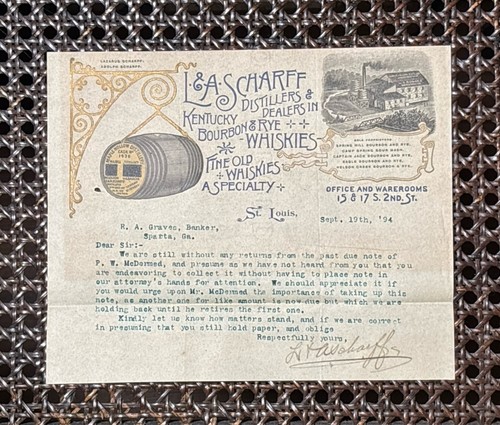 LAZARUS SCHARFF.
ADOLPH SCHARFF.
L. & A. SCHARFF
DISTILLERS &
DEALERS IN
KENTUCKY
BOURBON & RYE
WHISKIES
FINE OLD
WHISKIES
A SPECIALTY
SOLE PROPRIETORS
SPRING HILL BOURBON AND RYE,
CAMP SPRING SOUR MASH,
CAPTAIN JACK BOURBON AND RYE,
EAGLE BOURBON AND RYE,
NELSON CREEK BOURBON & RYE.
OFFICE AND WAREROOMS
15 & 17 S. 2ND. ST.
St. Louis, Sept. 19th, '94
R. A. Graves, Banker,
Sparta, Ga.
Dear Sir:-
We are still without any returns from the past due note of
P. W. McDormed, and presume as we have not heard from you that you
are endeavoring to collect it without having to place note in
our attorney's hands for attention. We should appreciate it if
you would urge upon Mr. McDermed the importance of taking up this
note, as another one for like amount is now due but which we are
holding back until he retires the first one.
Kindly let us know how matters stand, and if we are correct
in presuming that you still hold paper, and oblige
Respectfully yours,
L & A Scharff